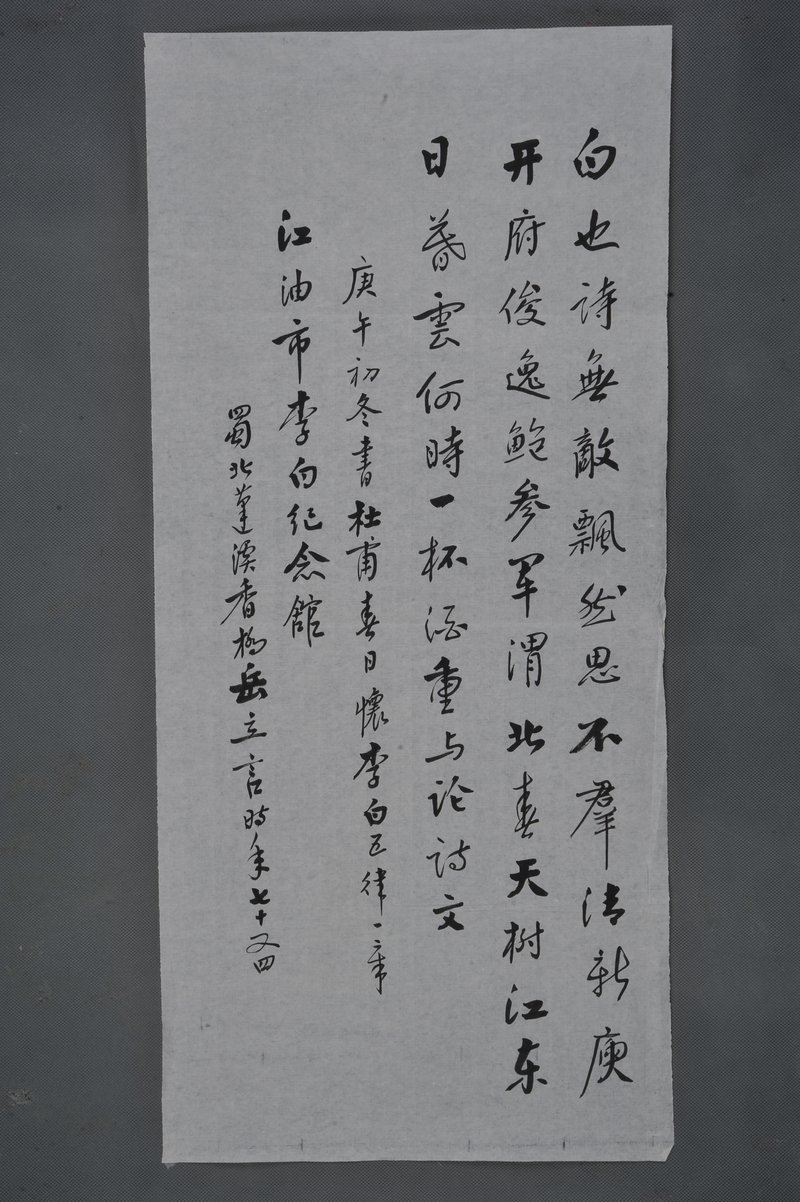 白也詩無敵飄然思不羣清新庾
开府俊逸鲍参军渭北春天树江东
日暮雲何時一杯酒重与论诗文
庚午初冬書杜甫春日懷李白五律一章
江油市李白纪念館
蜀北蓬溪香橋岳立言时年七十又四